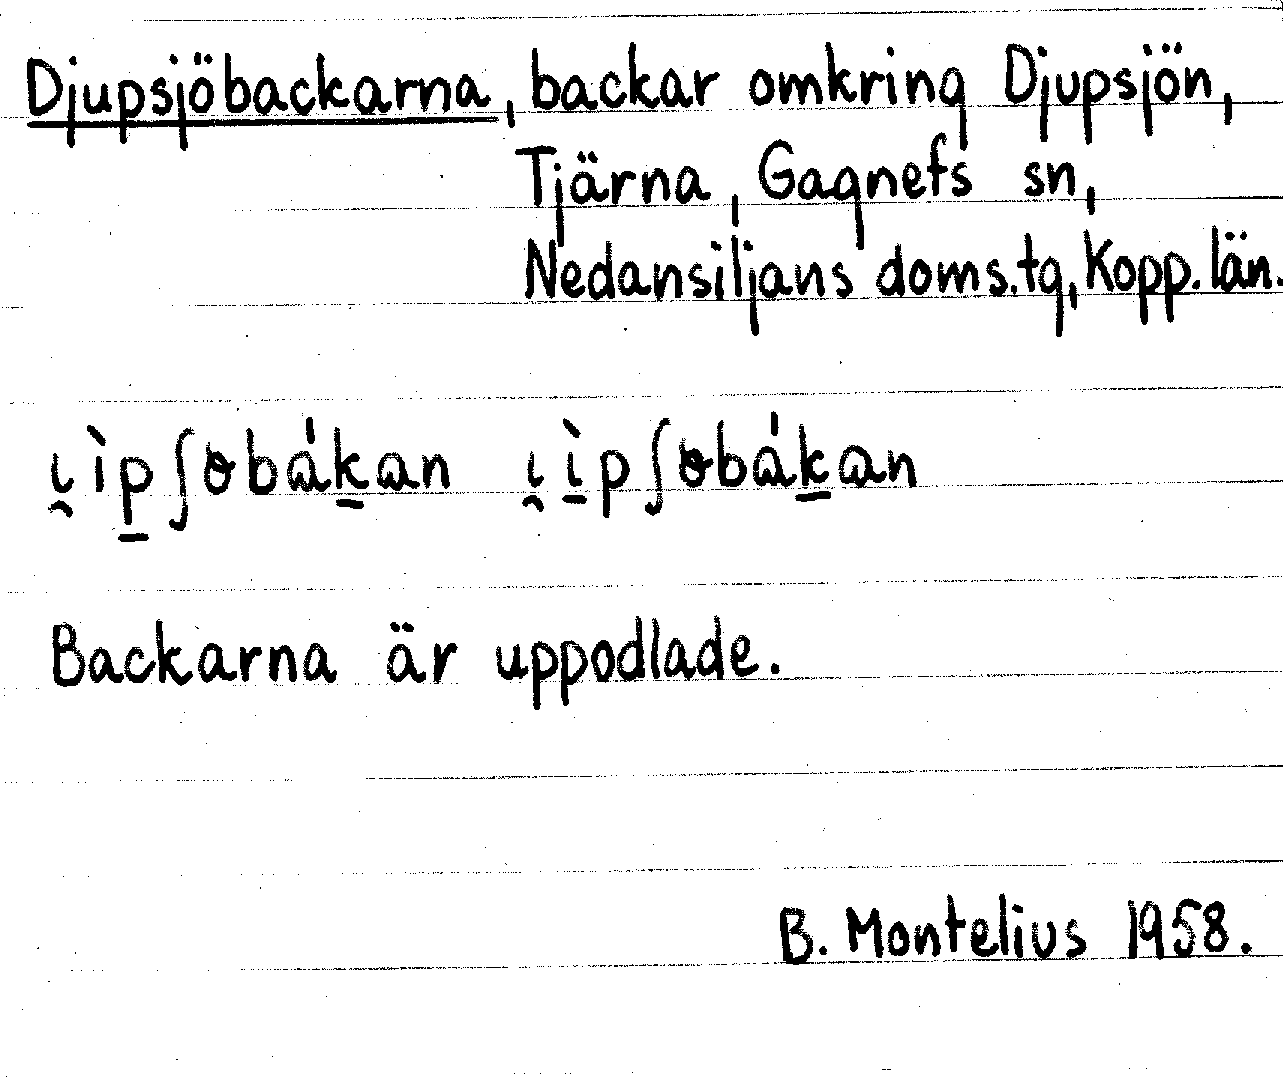 Djupsjöbackarna, backar omkring Djupsjön,
Tjärna, Gagnefs sn,
Nedansiljans doms.tg, Kopp. län.
Backarna är uppodlade.
B. Montelius 1958.